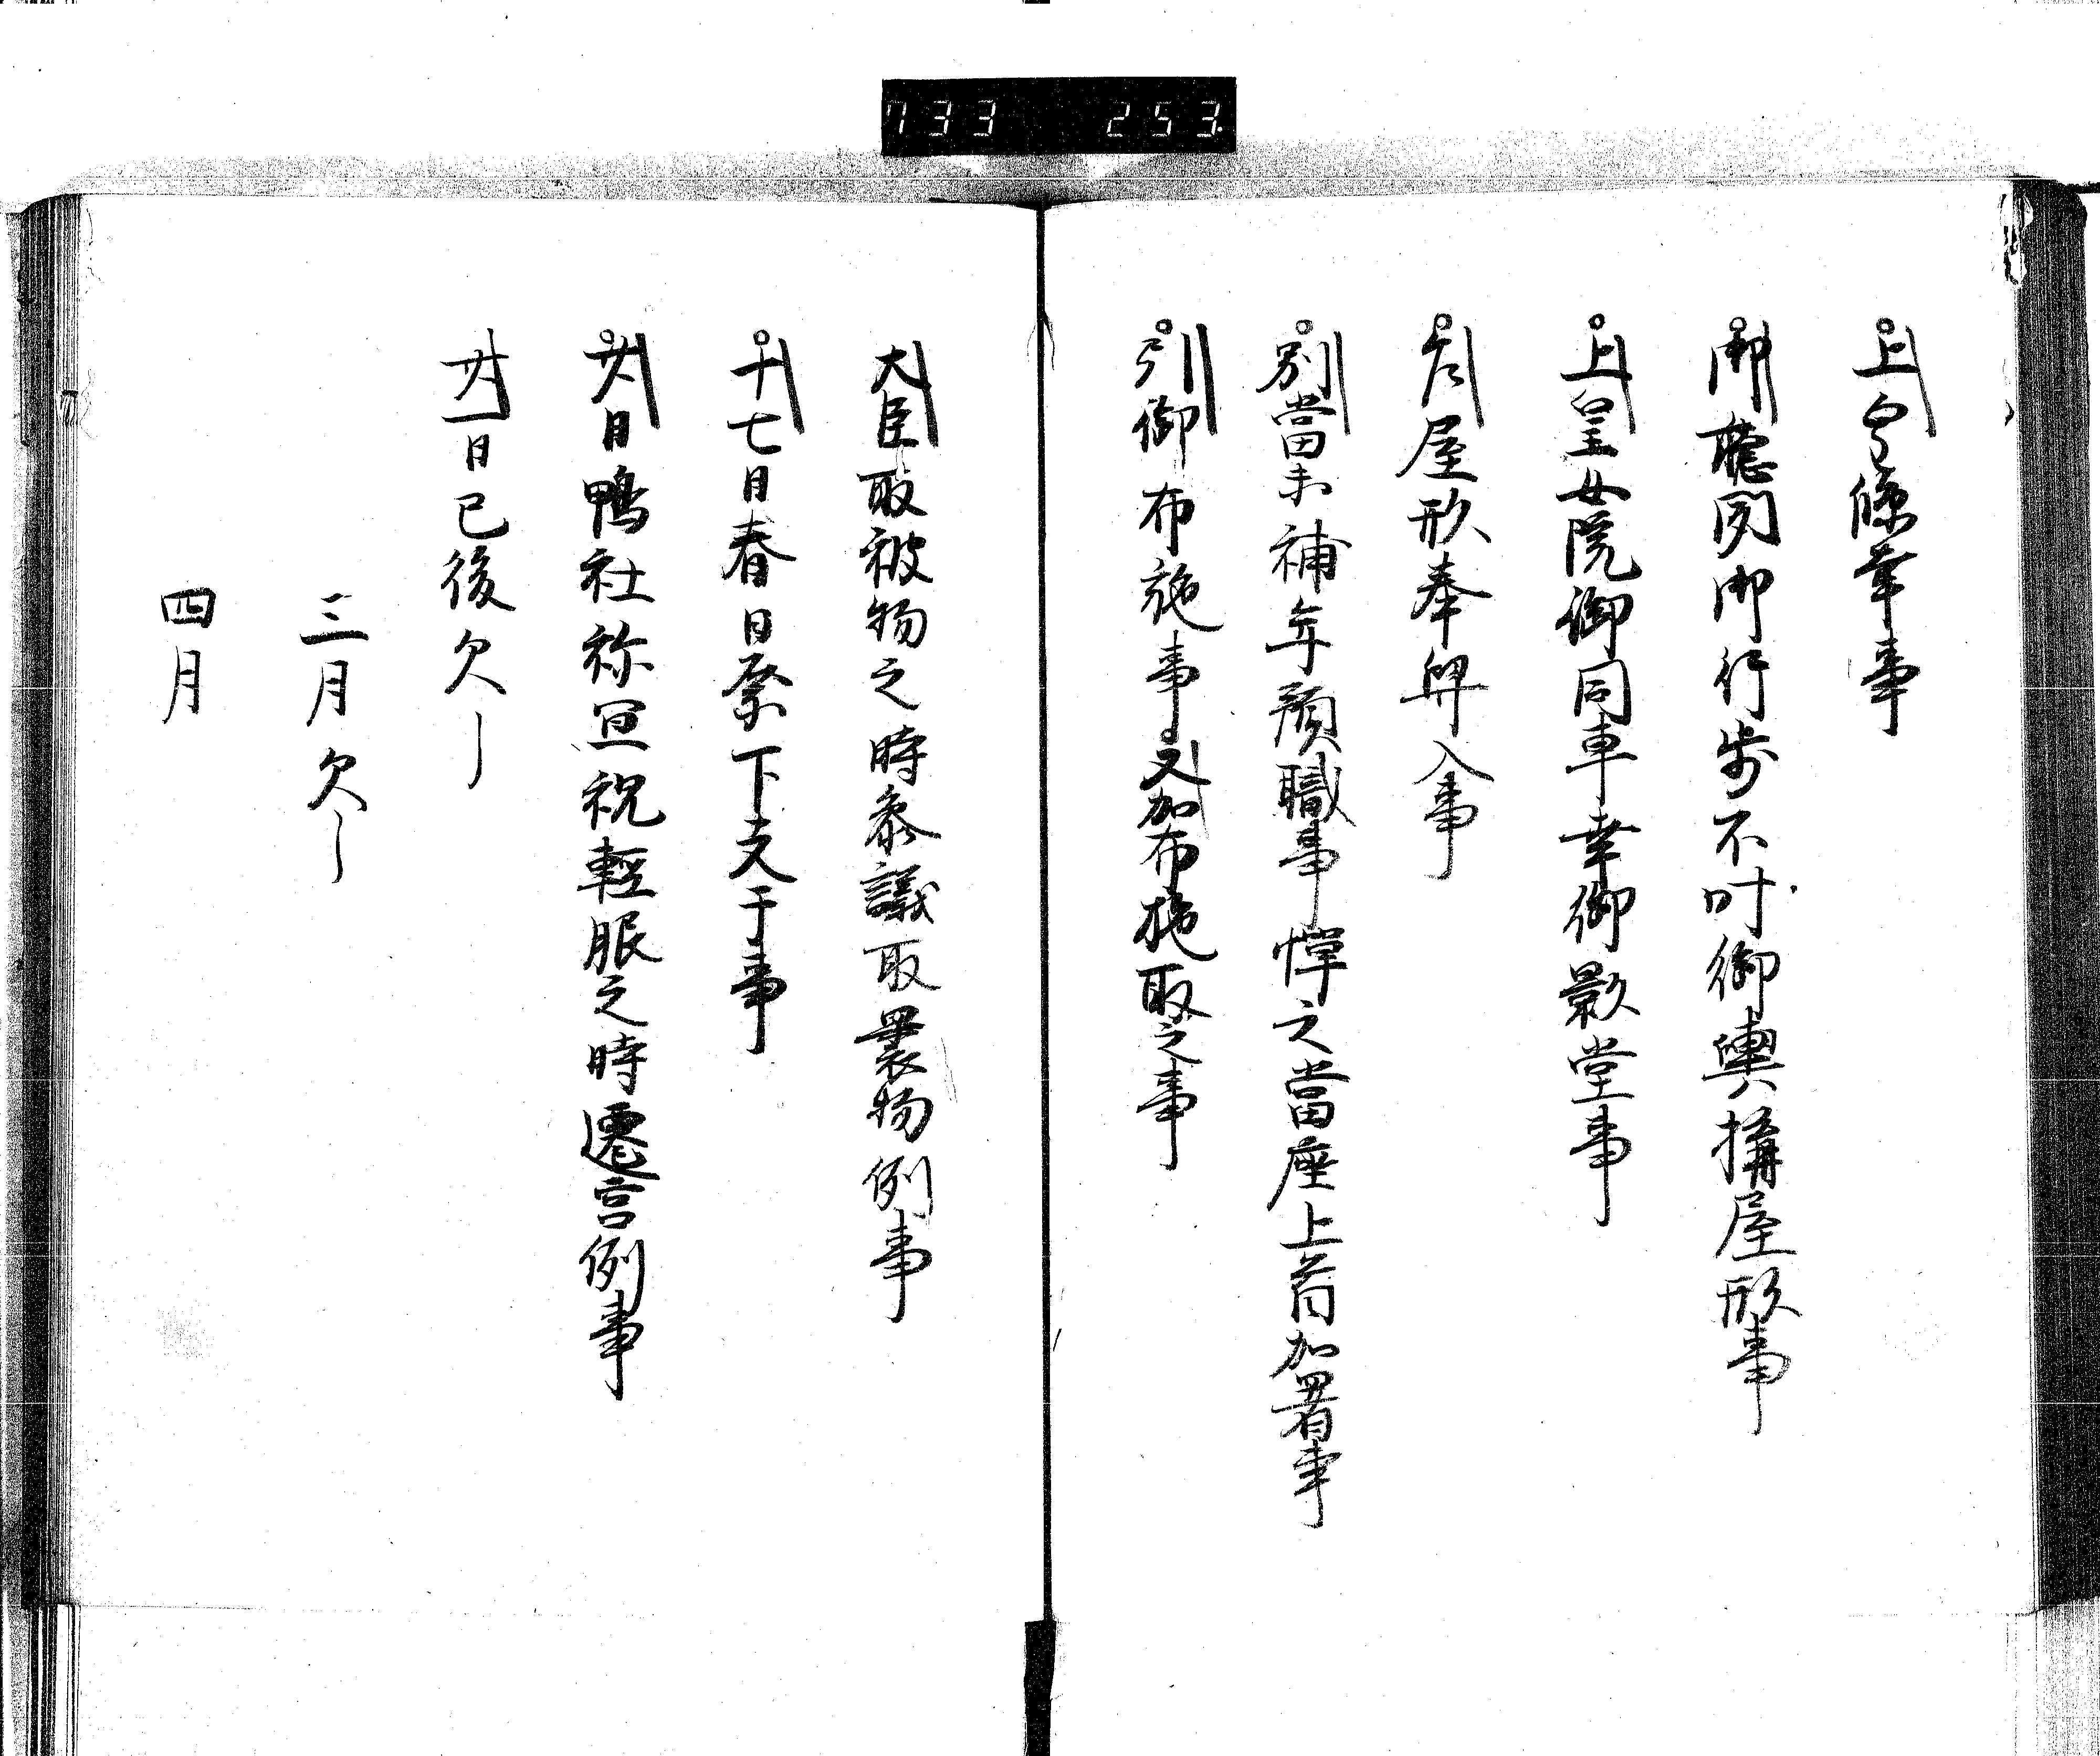 733 253
上皇降輦事
御聴聞御行歩不叶御輿構屋形事
上皇女院御同車幸御影堂事
着屋形奉舁入事
別當未補年預職事憚之當座上首加署事
引御布施事 又加布施取之事
大臣取被物之時參議取裹物例事
十七日春日祭下支干事
廿日鴨社祢宜祝輕服之時遷宮例事
廿一日已後欠
三月欠
四月